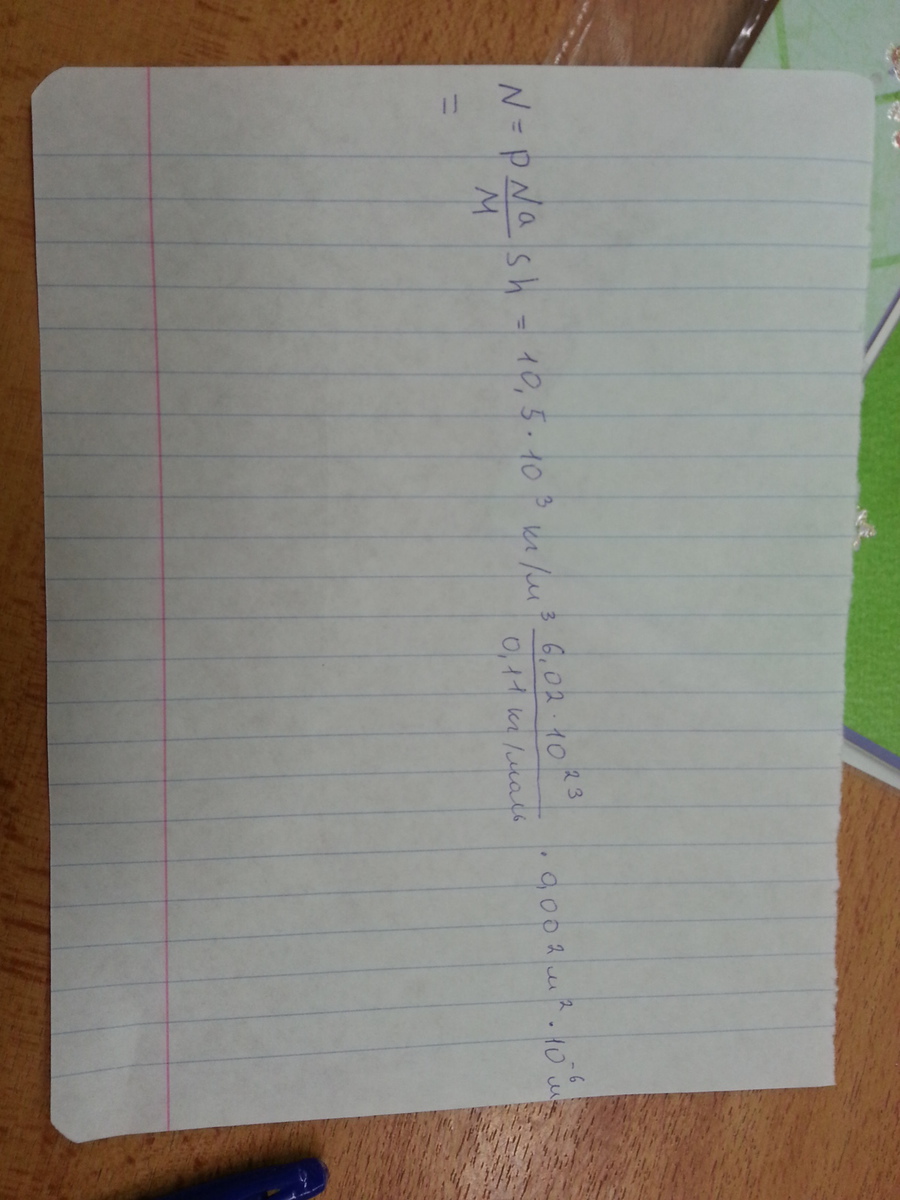 N = p Na/M S h = 10,5 · 10³ кг/м³ 6,02 · 10²³/0,11 кг/моль · 0,002 м² · 10⁻⁶ м
=